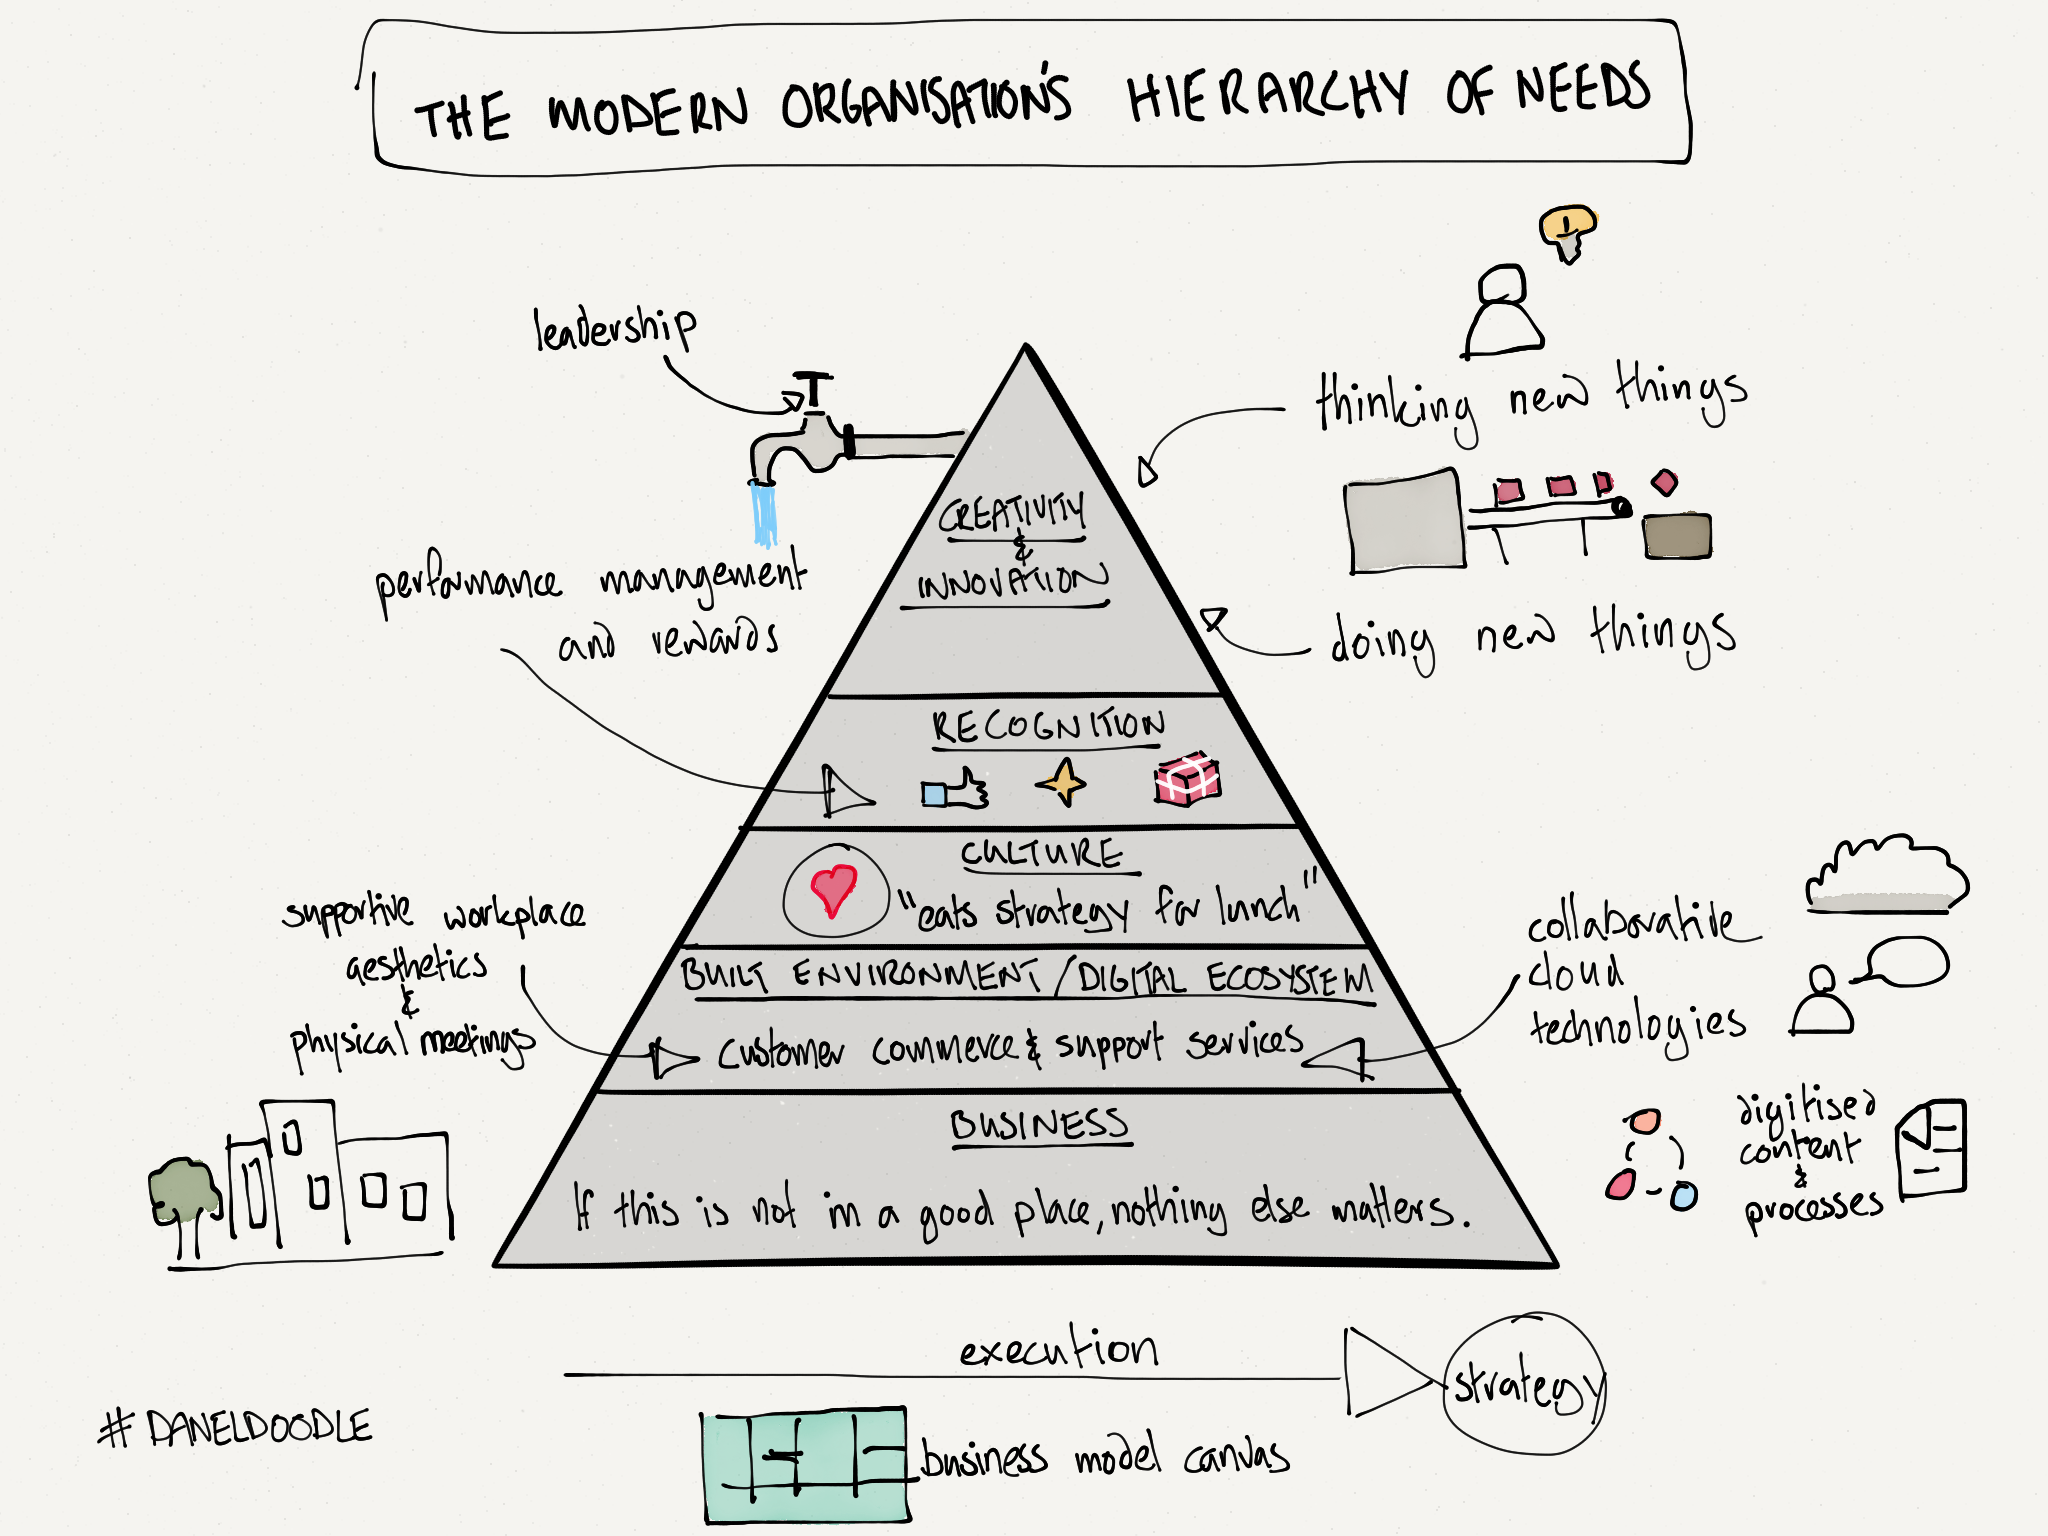 THE MODERN ORGANISATION'S HIERARCHY OF NEEDS
leadership
thinking new things
CREATIVITY
&
INNOVATION
performance management
and rewards
doing new things
RECOGNITION
CULTURE
"eats strategy for lunch"
supportive workplace
aesthetics
&
physical meetings
collaborative
cloud
technologies
BUILT ENVIRONMENT / DIGITAL ECOSYSTEM
Customer commerce & support services
BUSINESS
If this is not in a good place, nothing else matters.
digitised
content
&
processes
execution
strategy
business model canvas
# DANELDOODLE